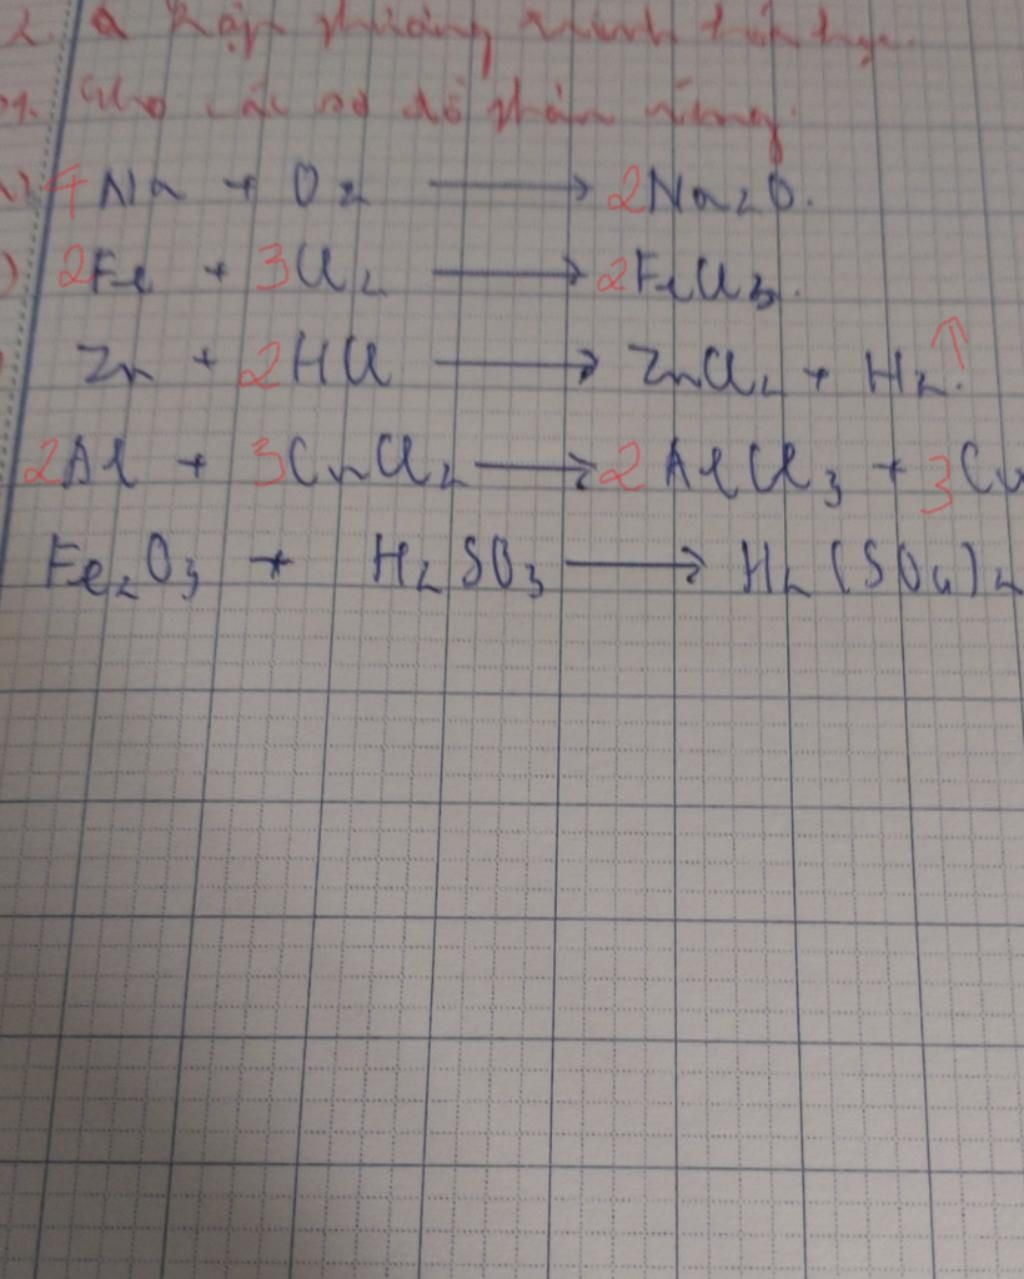 2. a Lập phương trình hóa học.
Cho các sơ đồ phản ứng:
4Na + O2 → 2Na2O.
) 2Fe + 3Cl2 → 2FeCl3.
Zn + 2HCl → ZnCl2 + H2.↑
2Al + 3CuCl2 → 2AlCl3 + 3Cu
Fe2O3 + H2SO3 → H2(SO4)2